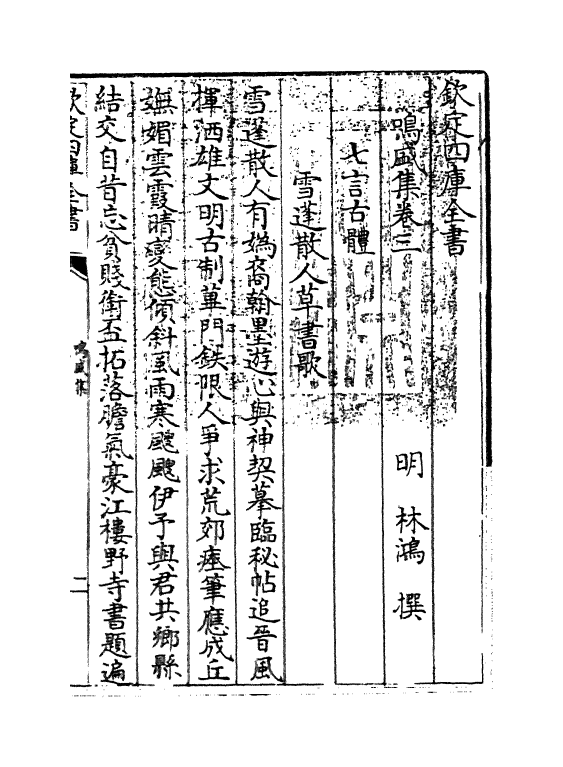 欽定四庫全書
鳴盛集卷三
明 林鴻 撰
七言古體
雪蓬散人草書歌
雪蓬散人有媯裔翰墨遊心與神契摹臨秘帖追晉風
揮洒雄文明古制蓽門鉄限人爭求荒郊瘞筆應成丘
嫵媚雲霞晴變態傾斜風雨寒颼颼伊予與君共鄉縣
結交自昔忘貧賤銜盃拓落膽氣豪江樓野寺書題遍
欽定四庫全書
鳴盛集
二